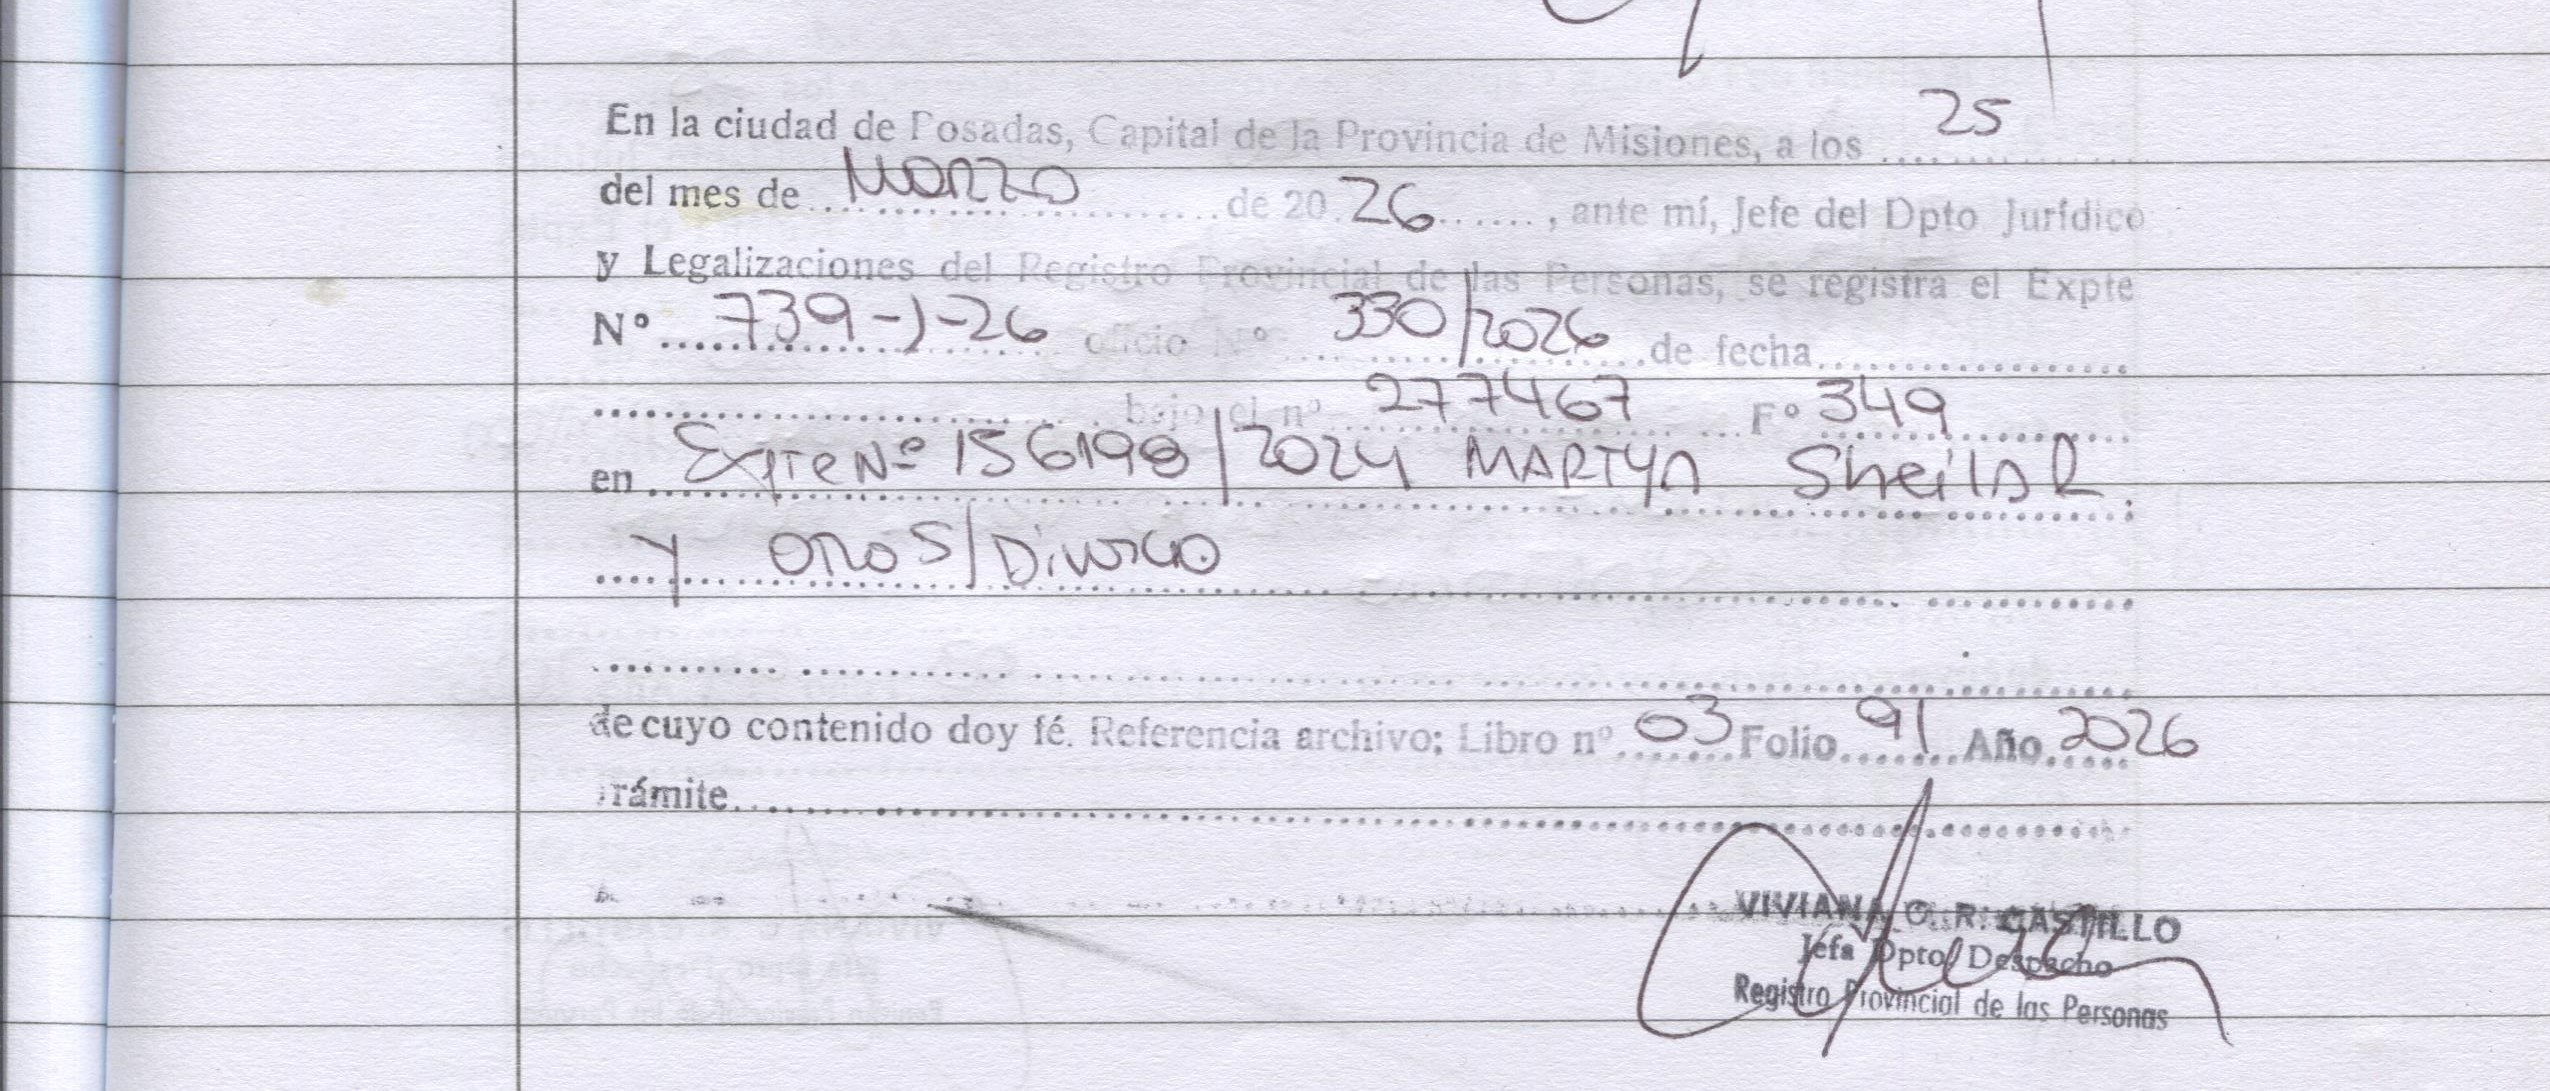 En la ciudad de Posadas, Capital de la Provincia de Misiones, a los 25
del mes de Marzo de 20 26 , ante mí, Jefe del Dpto Jurídico
y Legalizaciones del Registro Provincial de las Personas, se registra el Expte
Nº 739-J-26 oficio Nº 330/2026 de fecha
bajo el nº 277467 Fº 349
en Expte Nº 156198/2024 MARTYN Sheila R.
y otro S/ Divorcio
de cuyo contenido doy fé. Referencia archivo; Libro nº 03 Folio 91 Año 2026
trámite
VIVIANA C. R. CASTILLO
Jefa Dpto Despacho
Registro Provincial de las Personas